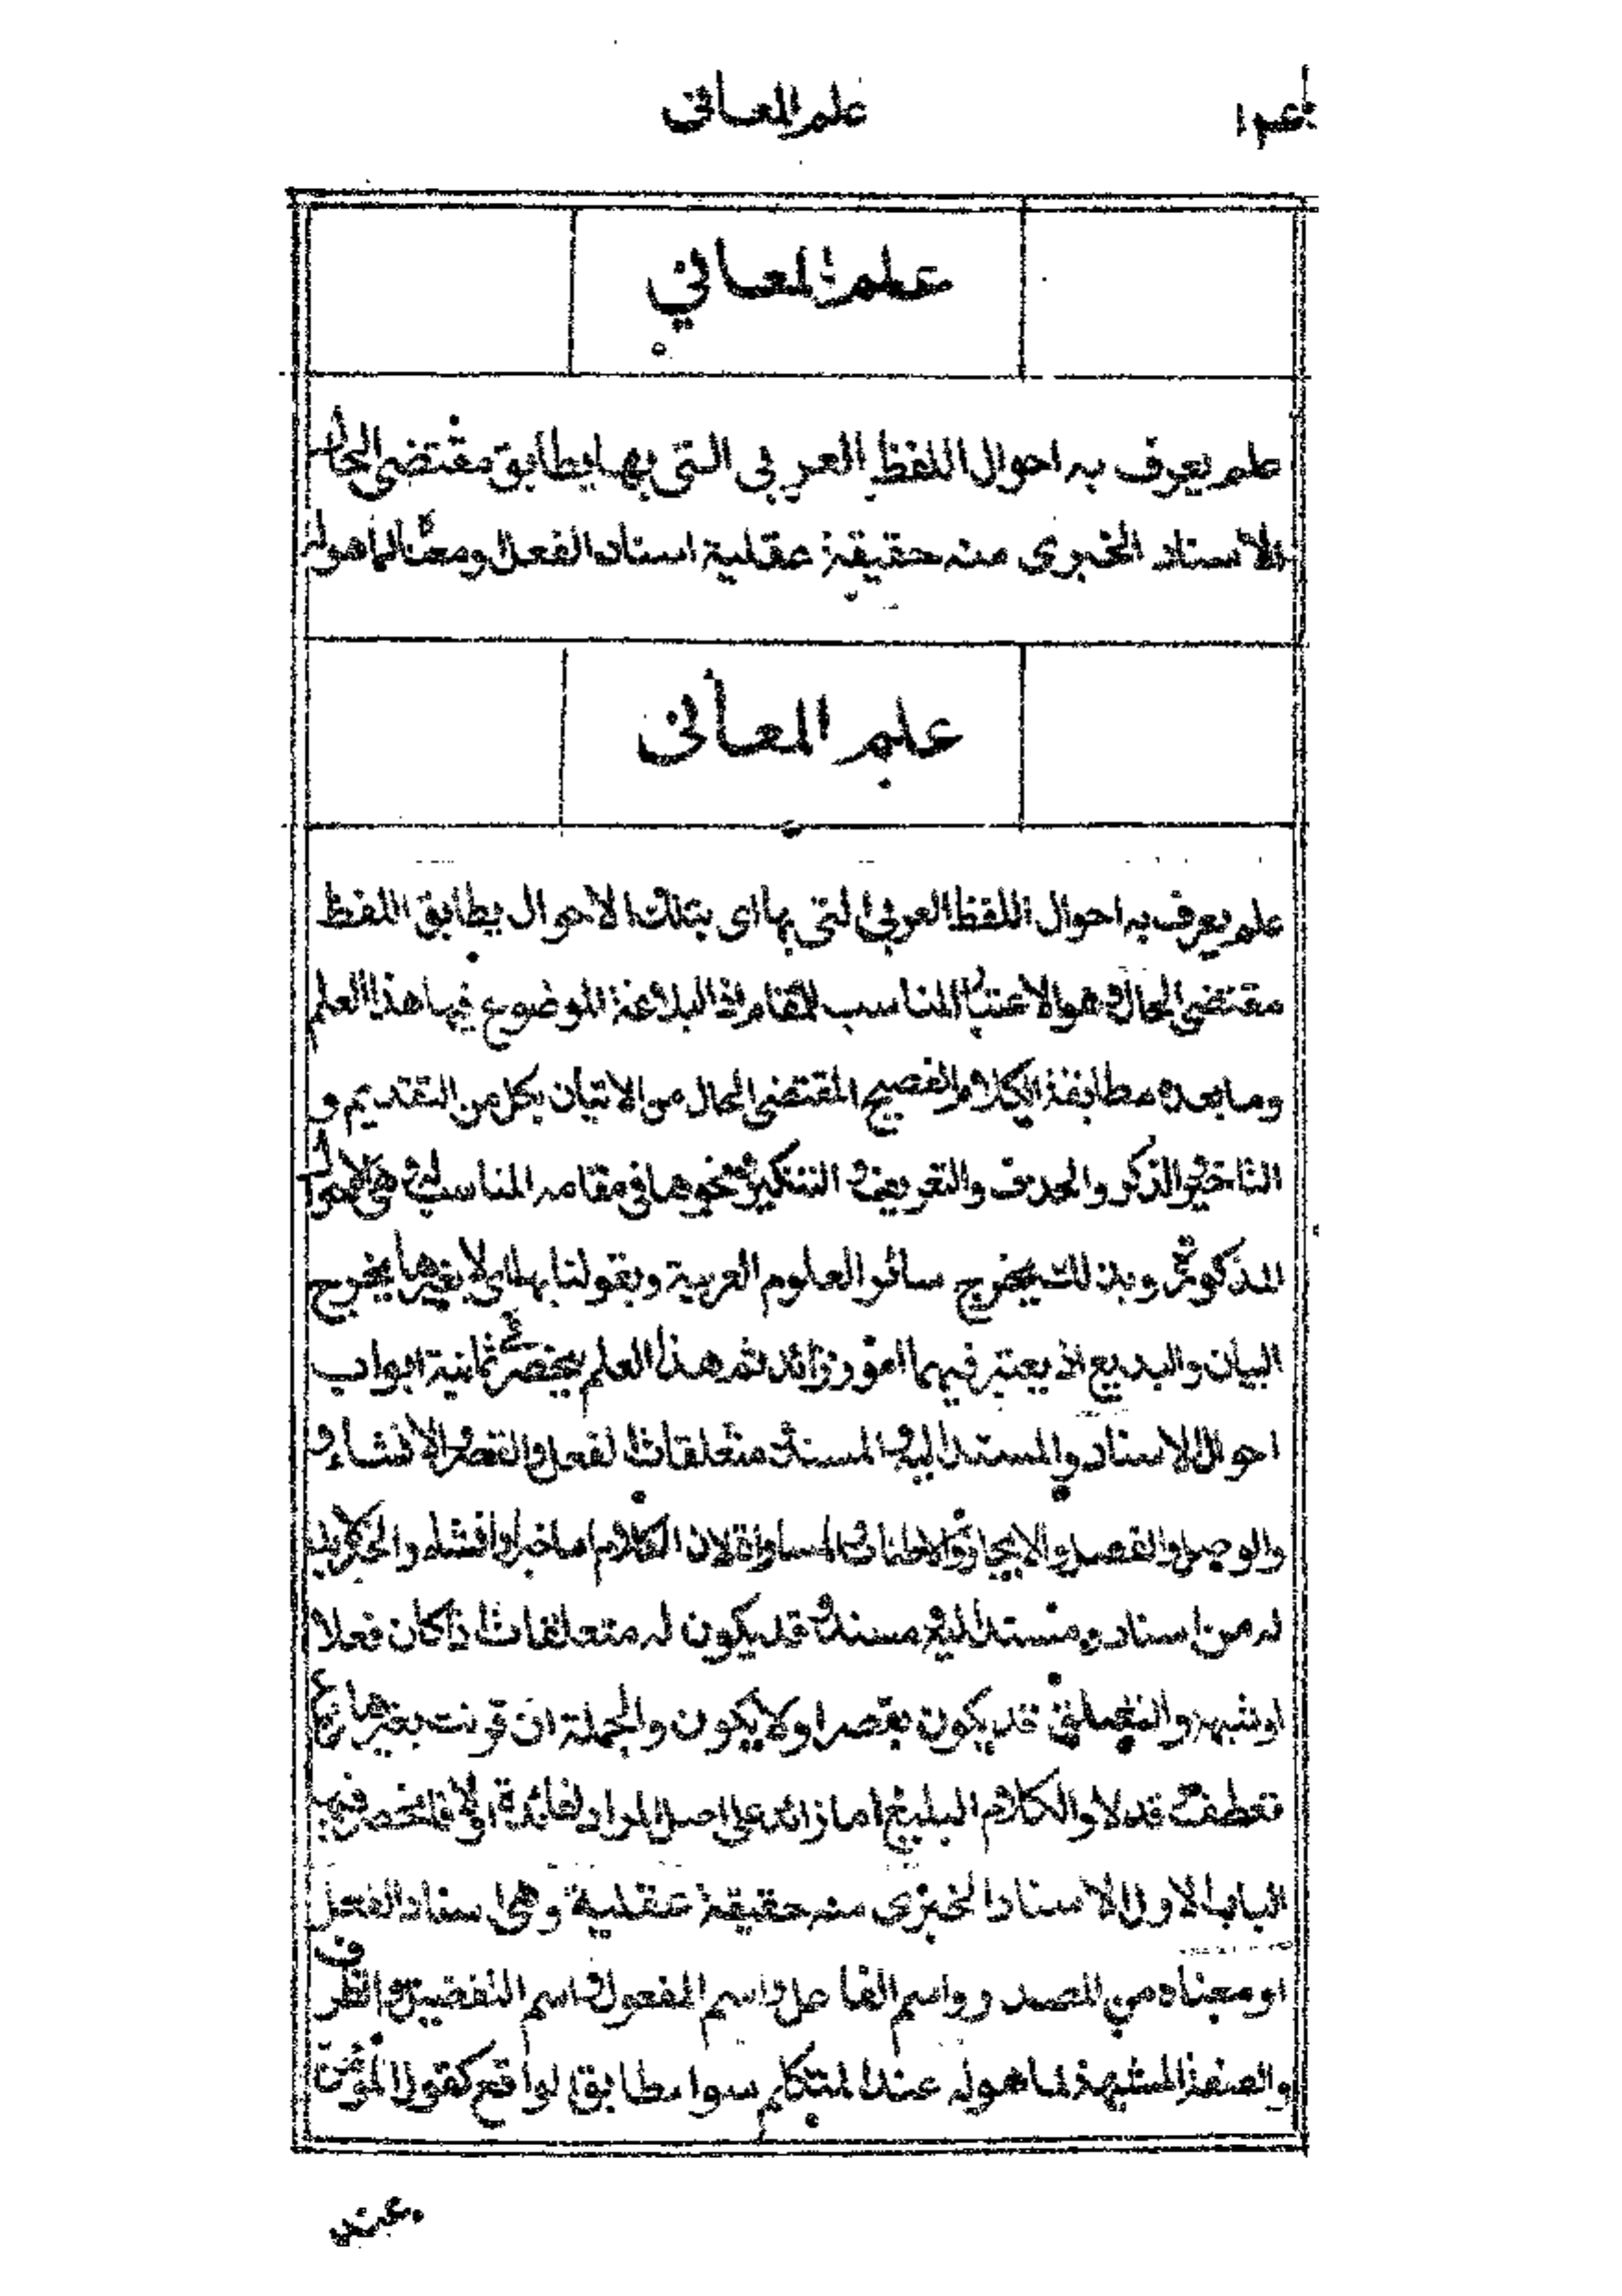 علم المعانى
علم المعاني
علم يعرف به احوال اللفظ العربى التى بها يطابق مقتضى الحال
الاسناد الخبرى منه حقيقة عقلية اسناد الفعل ومعناه لما هو له
علم المعانى
علم يعرف به احوال اللفظ العربى التى بها اى بتلك الاحوال يطابق اللفظ
مقتضى الحال وهو الاعتبار المناسب للمقام اذ البلاغة الموضوع فيها هذا العلم
وما بعده مطابقة الكلام الفصيح لمقتضى الحال من الاتيان بكل من التقديم و
التاخير والذكر والحذف والتعريف والتنكير ونحوها فى مقامه المناسب له وهى الاحوال
المذكورة وبذلك يخرج سائر العلوم العربية وبقولنا بها اى لا بغيرها يخرج
البيان والبديع اذ يعتبر فيهما امور زائد ثم هذا العلم ينحصر فى ثمانية ابواب
احوال الاسناد والمسند اليه والمسند ومتعلقات الفعل والقصر والانشاء و
والوصل والفصل والايجاز والاطناب والمساواة لان الكلام اما خبر او انشاء والخبر لابد
له من اسناد ومسند اليه ومسند وقد يكون له متعلقات اذا كان فعلا
او شبهه والتعلق قد يكون بقصر اولا يكون والجملة ان قرنت بغيرها قد
تعطف وقد لا والكلام البليغ اما زائد على اصل المراد لفائدة او لا فانحصر فيها
الباب الاول الاسناد الخبرى منه حقيقة عقلية وهى اسناد الفعل
او معناه من المصدر واسم الفاعل واسم المفعول واسم التفضيل والظرف
والصفة المشبهة لما هو له عند المتكلم سواء طابق الواقع كقول المؤمن